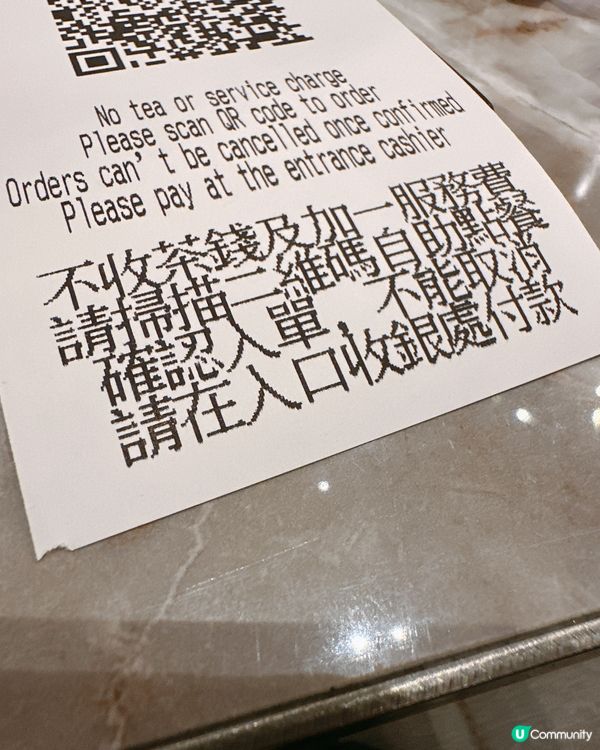 No tea or service charge
Please scan QR code to order
Orders can't be cancelled once confirmed
Please pay at the entrance cashier
不收茶錢及加一服務費
請掃描二維碼自助點餐
確認入單，不能取消
請在入口收銀處付款
U Community